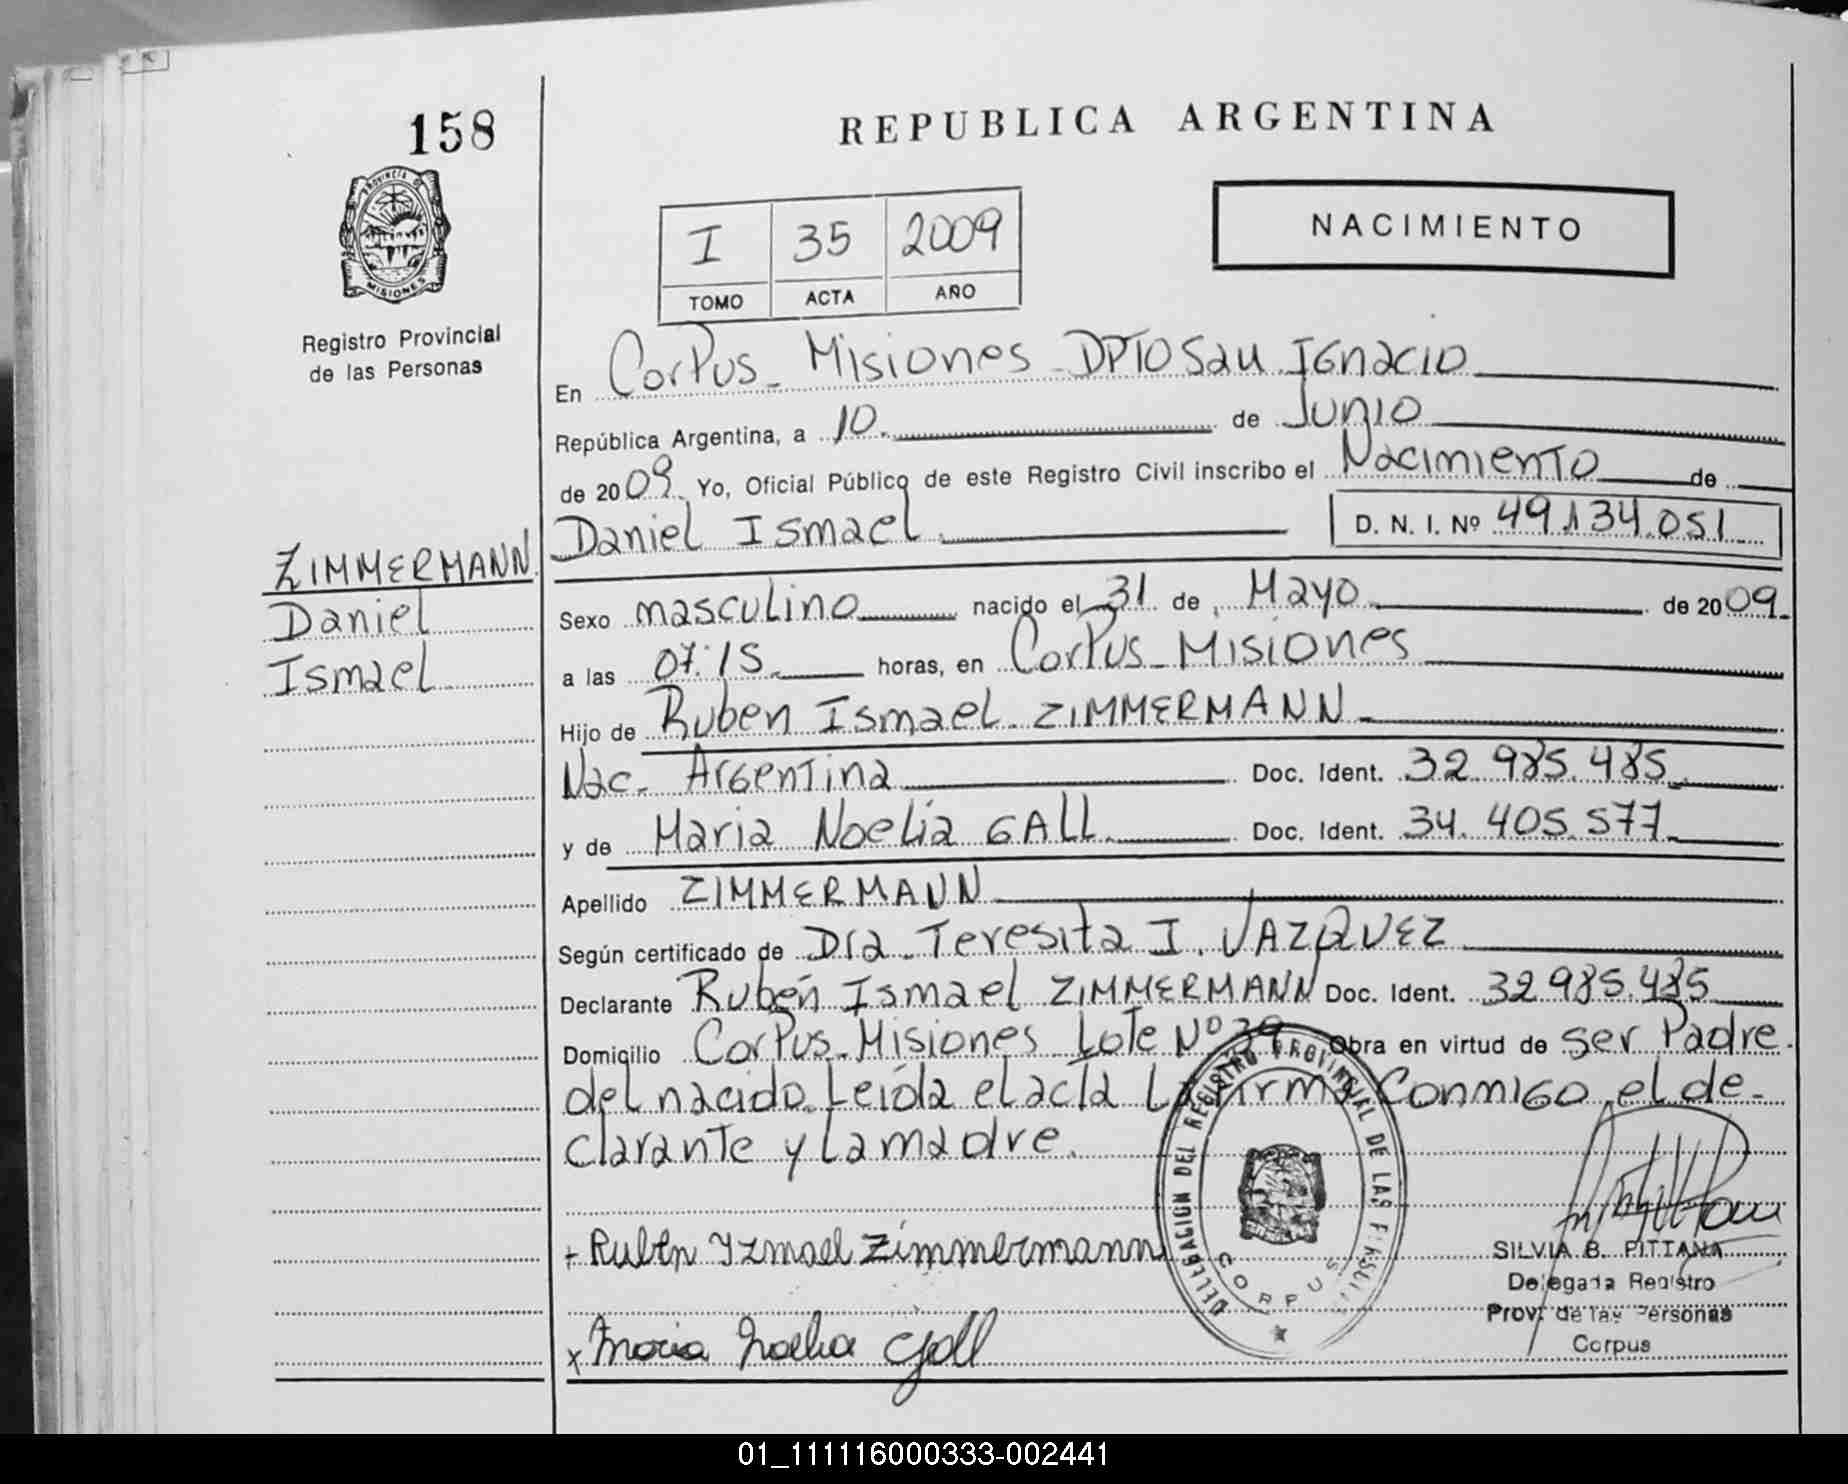 158
REPUBLICA ARGENTINA
PROVINCIA D MISIONES
Registro Provincial
de las Personas
I 35 2009
TOMO ACTA AÑO
NACIMIENTO
En Corpus - Misiones - DPTO San Ignacio
República Argentina, a 10. de Junio
de 2009. Yo, Oficial Público de este Registro Civil inscribo el Nacimiento de
Daniel Ismael D. N. I. Nº 49.134.051
ZIMMERMANN
Daniel
Ismael
Sexo masculino nacido el 31 de Mayo de 2009.
a las 07:15 horas, en Corpus - Misiones
Hijo de Ruben Ismael ZIMMERMANN
Nac. Argentina Doc. Ident. 32.985.485
y de Maria Noelia GALL Doc. Ident. 34.405.577
Apellido ZIMMERMANN
Según certificado de Dra. Teresita I. VAZQUEZ
Declarante Rubén Ismael ZIMMERMANN Doc. Ident. 32985.485
Domicilio Corpus - Misiones Lote Nº 39 Obra en virtud de ser Padre
del nacido. Leída el acta La firma Conmigo el de-
clarante y la madre.
+ Rubén Yzmael Zimmermann
x Maria Noelia Gall
DELEGACION DEL REGISTRO PROVINCIAL DE LAS PERSONAS
CORPUS
SILVIA B. PITTANA
Delegada Registro
Prov. de las Personas
Corpus
01_111116000333-002441